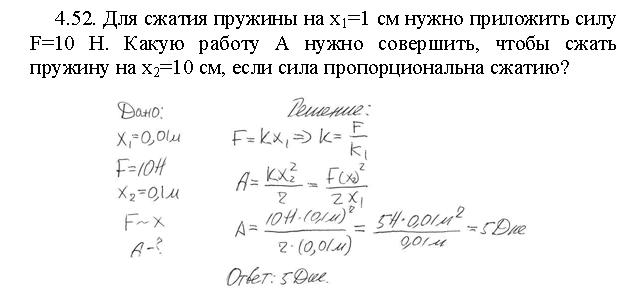 4.52. Для сжатия пружины на x₁=1 см нужно приложить силу
F=10 Н. Какую работу А нужно совершить, чтобы сжать
пружину на x₂=10 см, если сила пропорциональна сжатию?
Дано:
x₁=0,01м
F=10Н
x₂=0,1м
F~x
A-?
Решение:
F=kx₁ => k= F/k₁
A= kx₂²/2 = F(x₂)²/2x₁
A= 10Н·(0,1м)²/2·(0,01м) = 5Н·0,01м²/0,01м = 5Дж
Ответ: 5Дж.